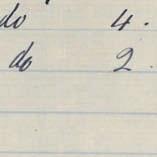 do 4.
do 2.